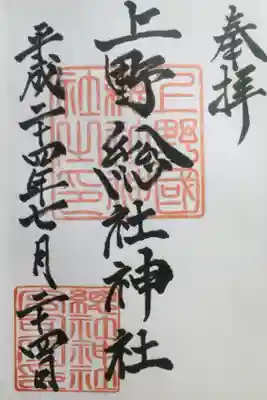 奉拝
上野総社神社
平成二十四年七月二十四日
上野國
総社神
社之印